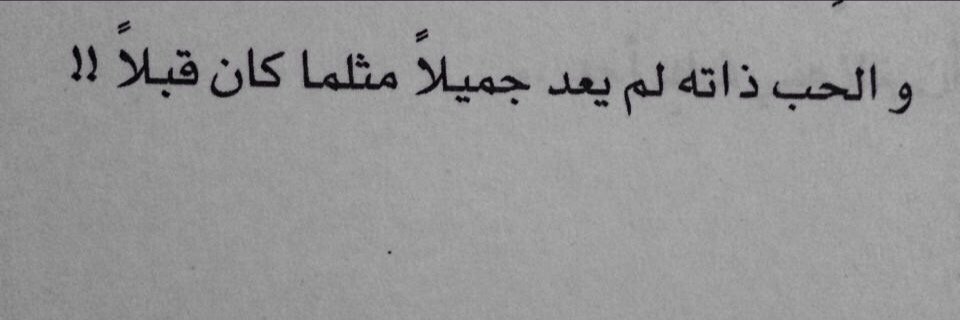 و الحب ذاته لم يعد جميلاً مثلما كان قبلاً !!